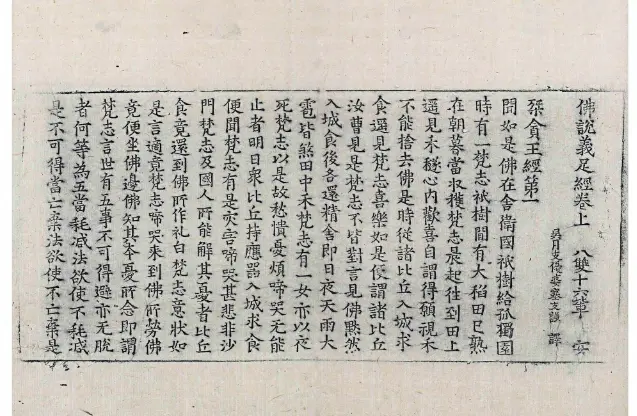 佛說義足經卷上 八雙十六章 安
吳月支優婆塞支謙 譯
桀貪王經第一
聞如是佛在舍衛國祇樹給孤獨園
時有一梵志祇樹間有大稻田已熟
在朝暮當収穫梵志晨起往到田上
遥見禾穟心内歡喜自謂得願視禾
不能捨去佛是時從諸比丘入城求
食遥見梵志喜樂如是便謂諸比丘
汝曹見是梵志不皆對言見佛黙然
入城食後各還精舍即日夜天雨大
雹皆煞田中禾梵志有一女亦以夜
死梵志以是故愁憒憂煩啼哭无能
止者明日衆比丘持應器入城求食
便聞梵志有是灾害啼哭甚悲非沙
門梵志及國人所能解其憂者比丘
食竟還到佛所作礼白梵志意狀如
是言適竟梵志啼哭来到佛所勞佛
竟便坐佛邊佛知其本憂所念即謂
梵志言世有五事不可得避亦无脫
者何等為五當耗减法欲使不耗减
是不可得當亡棄法欲使不亡棄是